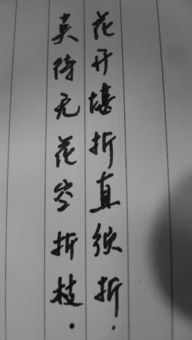 花开堪折直须折.
莫待无花空折枝.